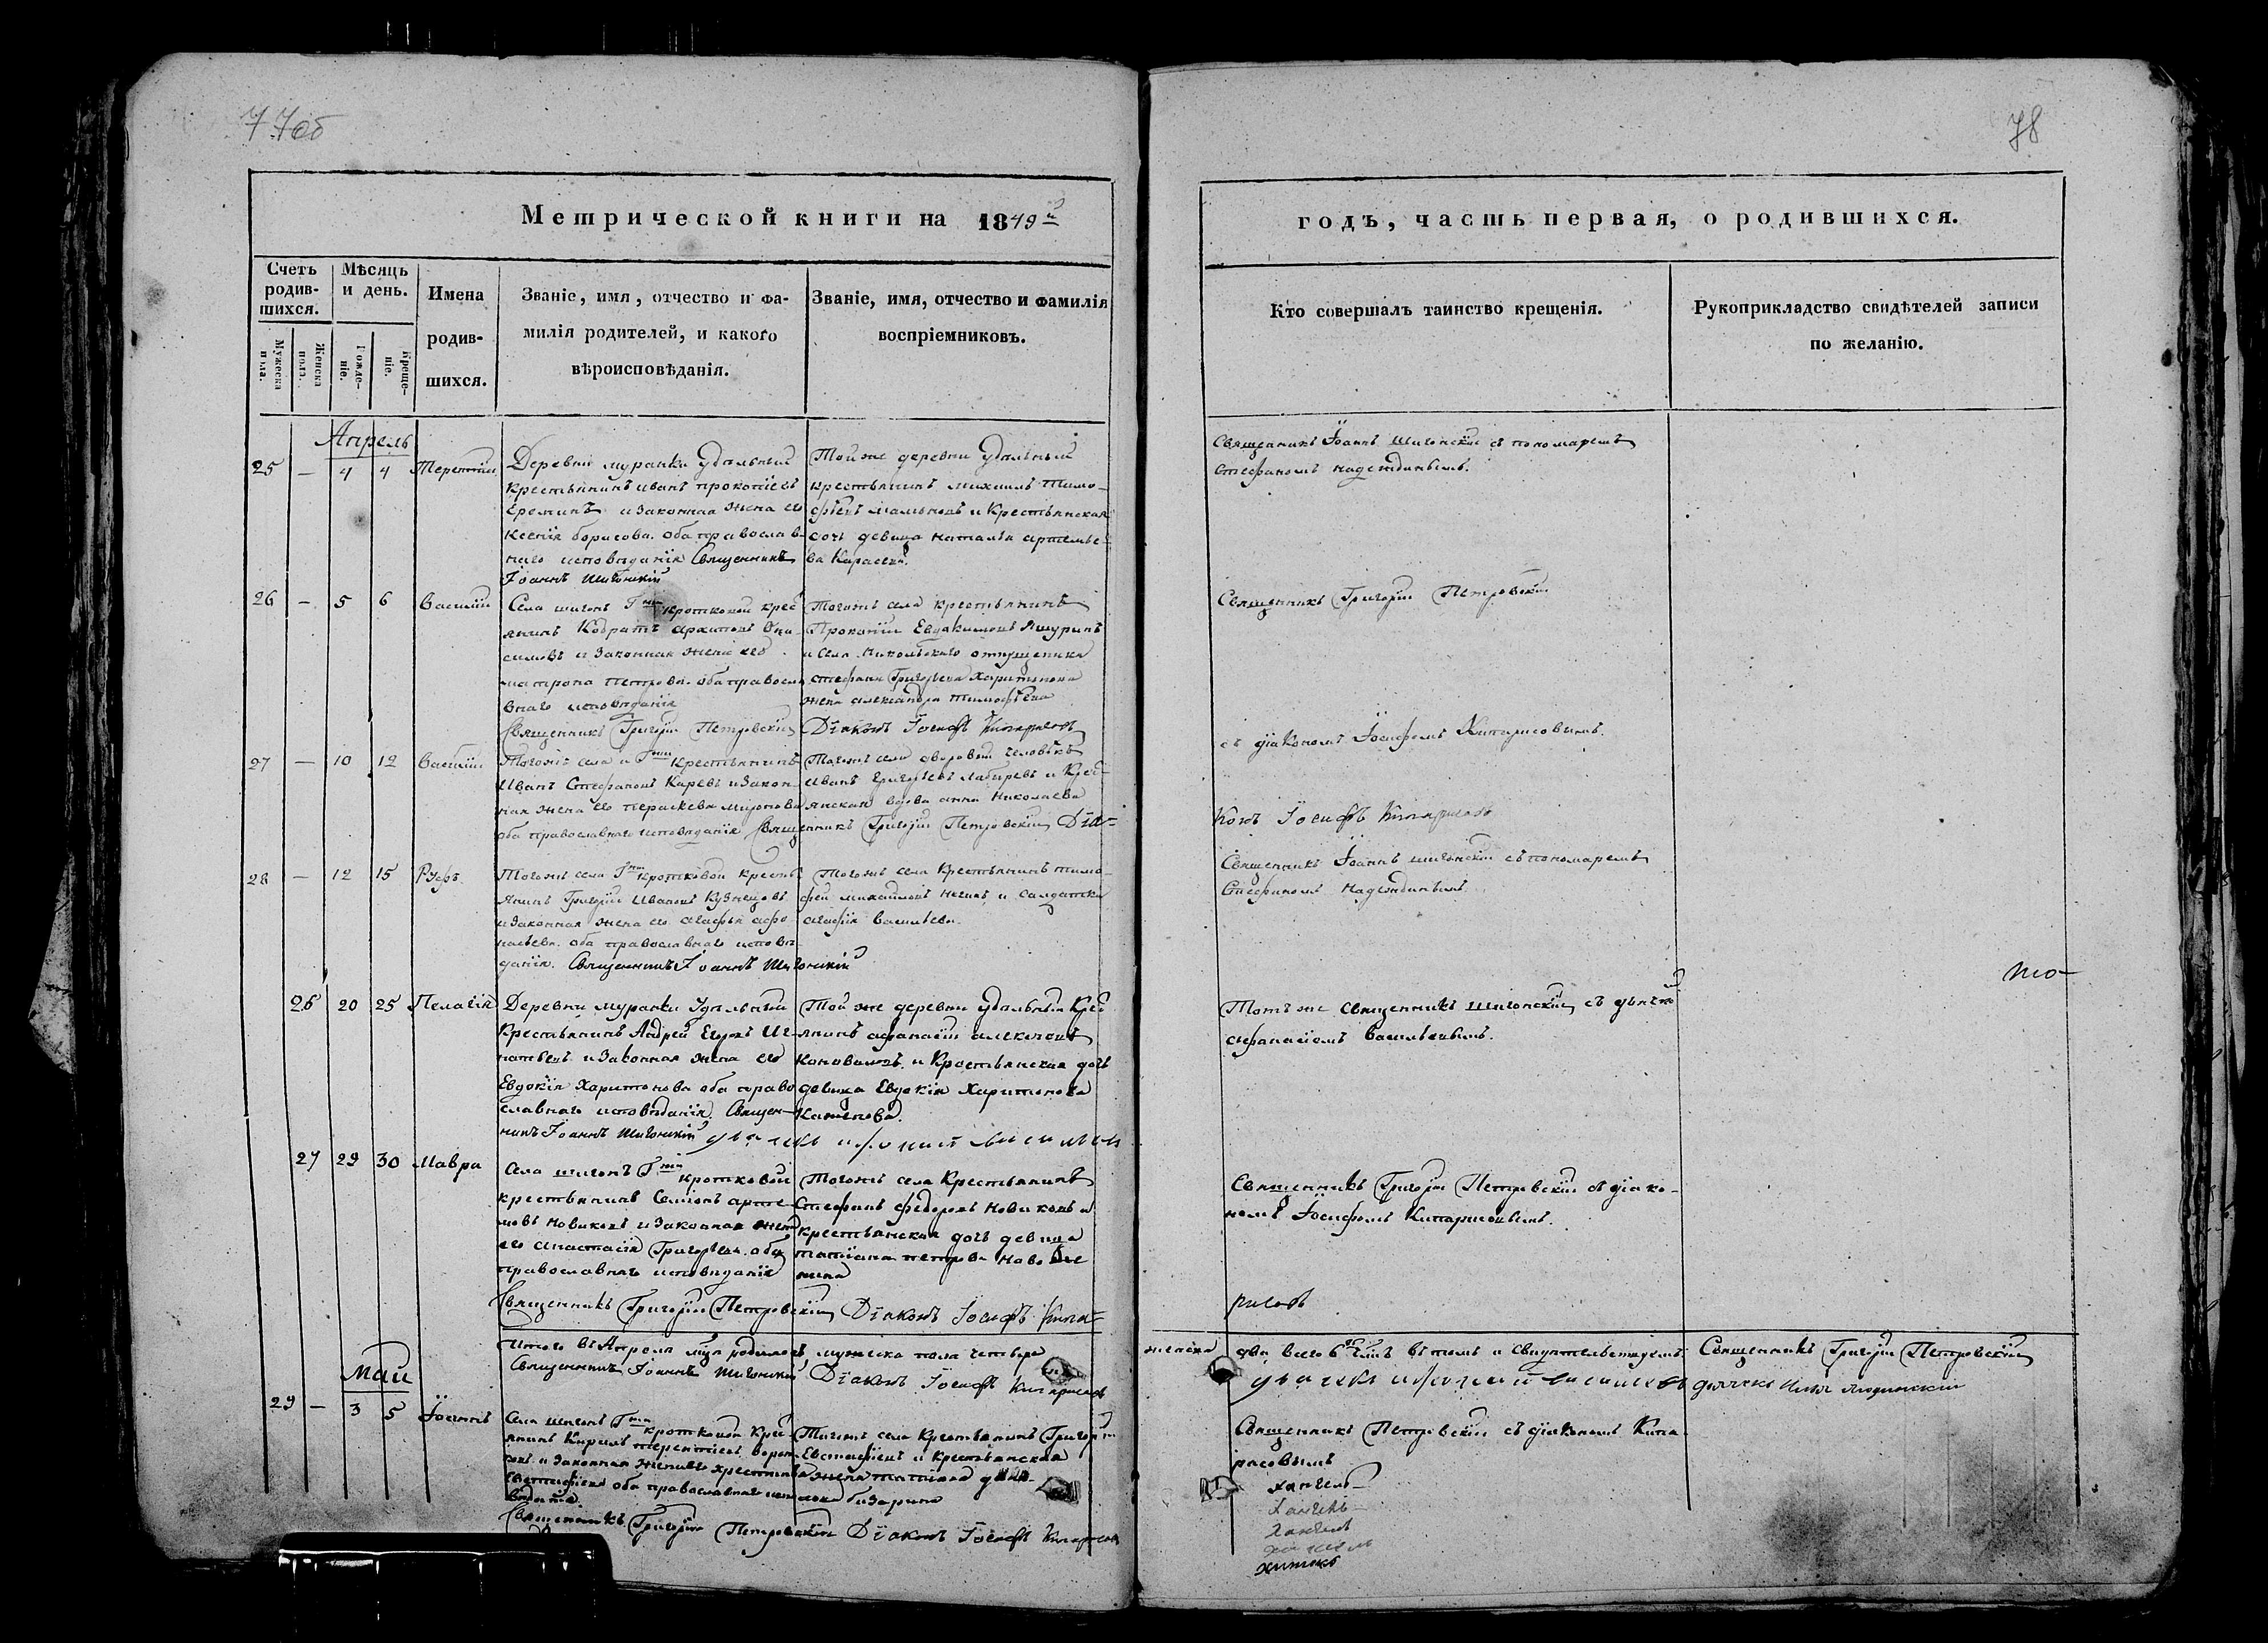 77об
78
Метрической книги на 1849й
годъ, часть первая, о родившихся.
Счетъ родив-
шихся.
Мужеска пола.
Женска пола.
Мѣсяцъ
и день.
Рожде-
ніе.
Креще-
ніе.
Имена
родив-
шихся.
Званіе, имя, отчество и фа-
милія родителей, и какого
вѣроисповѣданія.
Званіе, имя, отчество и фамилія
воспріемниковъ.
Кто совершалъ таинство крещенія.
Рукоприкладство свидѣтелей записи
по желанію.
Апрель
25 — 4 4 Терентій
Деревни муранки удѣльный
крестьянинъ иванъ прокопіевъ
Ереминъ и законная жена его
ксенія борисова. оба православ-
наго исповѣданія Священникъ
Іоаннъ Шигонскій
Той же деревни удѣльный
крестьянинъ михаилъ тимо-
фѣевъ мамоновъ и крестьянская
дочь девица наталья артемье-
ва Карасева.
Священникъ Іоаннъ шигонскій съ пономаремъ
Стефаномъ надеждинымъ.
26 — 5 6 Василій
Села шигонъ Гжи кротковой крес
янинъ Кодратъ архиповъ Они-
симовъ и законная жена его
матрона петрова. оба правосла
внаго исповѣданія
Священникъ Григорій Петровскій
Тогожъ села крестьянинъ
Прокопій Евдакимовъ
и села Никольскаго отпущеника
стефана Григорьева Харитонова
жена александра тимофѣева
Діаконъ Іосифъ Кипарисовъ
Священникъ Григорій Петровскій
съ діакономъ Іосифомъ Кипарисовымъ.
27 — 10 12 Василій
Тогожъ села и Гжи крестьянинъ
Иванъ Стефановъ Каревъ и закон-
ная жена его параскева миронова
оба православнаго исповѣданія Священникъ Григорій Петровскій Діа-
Тогожъ села дворовый человѣкъ
иванъ григорьевъ лабыревъ и крес
янская вдова анна Николаева
конъ Іосифъ Кипарисовъ
28 — 12 15 Руфъ.
Тогожъ села Гжи кротковой кресть
янинъ Григорій Ивановъ Кузнецовъ
и законная жена его агафья афо
насьева. оба православнаго исповѣ
данія. Священникъ Іоаннъ Шигонскій
Тогожъ села крестьянинъ тимо-
фей михайловъ и салдатка
агафія васильева.
Священникъ Іоаннъ шигонскій съ пономаремъ
Стефаномъ Надеждинымъ
26 20 25 Пелагія
Деревни муранки Удѣльный
Крестьянинъ Андрей Егоровъ Иг-
натьевъ и законная жена его
Евдокія Харитонова оба право
славнаго исповѣданія. Священ-
никъ Іоаннъ Шигонскій
Той же деревни удѣльный крес
янинъ афанасій алексеевъ
Коноваловъ. и Крестьянская дочь
девица Евдокія Харитонова
Тотъ же священникъ шигонскій съ дьячко
афанасіемъ Васильевымъ.
27 29 30 Мавра
Села шигонъ Гжи кротковой
крестьянинъ Семіонъ арте-
мовъ Новиковъ и законная жена
его Анастасія Григорьева. оба
православнаго исповѣданія
Священникъ Григорій Петровскій
Тогожъ села Крестьянинъ
Стефанъ федоровъ Новиковъ и
крестьянская дочь девица
татіана петрова
Діаконъ Іосифъ Кипа-
Священникъ Григорій Петровскій съ діако-
номъ Іосифомъ Кипарисовымъ.
рисовъ
Итого въ Апреле мцѣ родилось мужеска пола четверо
женска два всего 6 въ томъ и свидѣтельствуемъ
Священникъ Іоаннъ Шигонскій Діаконъ Іосифъ Кипарисовъ
Священникъ Григорій Петровскій
Май
29 — 3 5 Іоаннъ
Села шигонъ Гжи кротковой крес
янинъ Кирилъ терентіевъ
и законная жена его
оба православнаго
Священникъ Григорій Петровскій
Тогожъ села крестьянинъ Григорій
Евстафіевъ и крестьянская
жена татіана
Діаконъ Іосифъ Кипарисовъ
Священникъ Петровскій съ діакономъ Кипа
рисовымъ